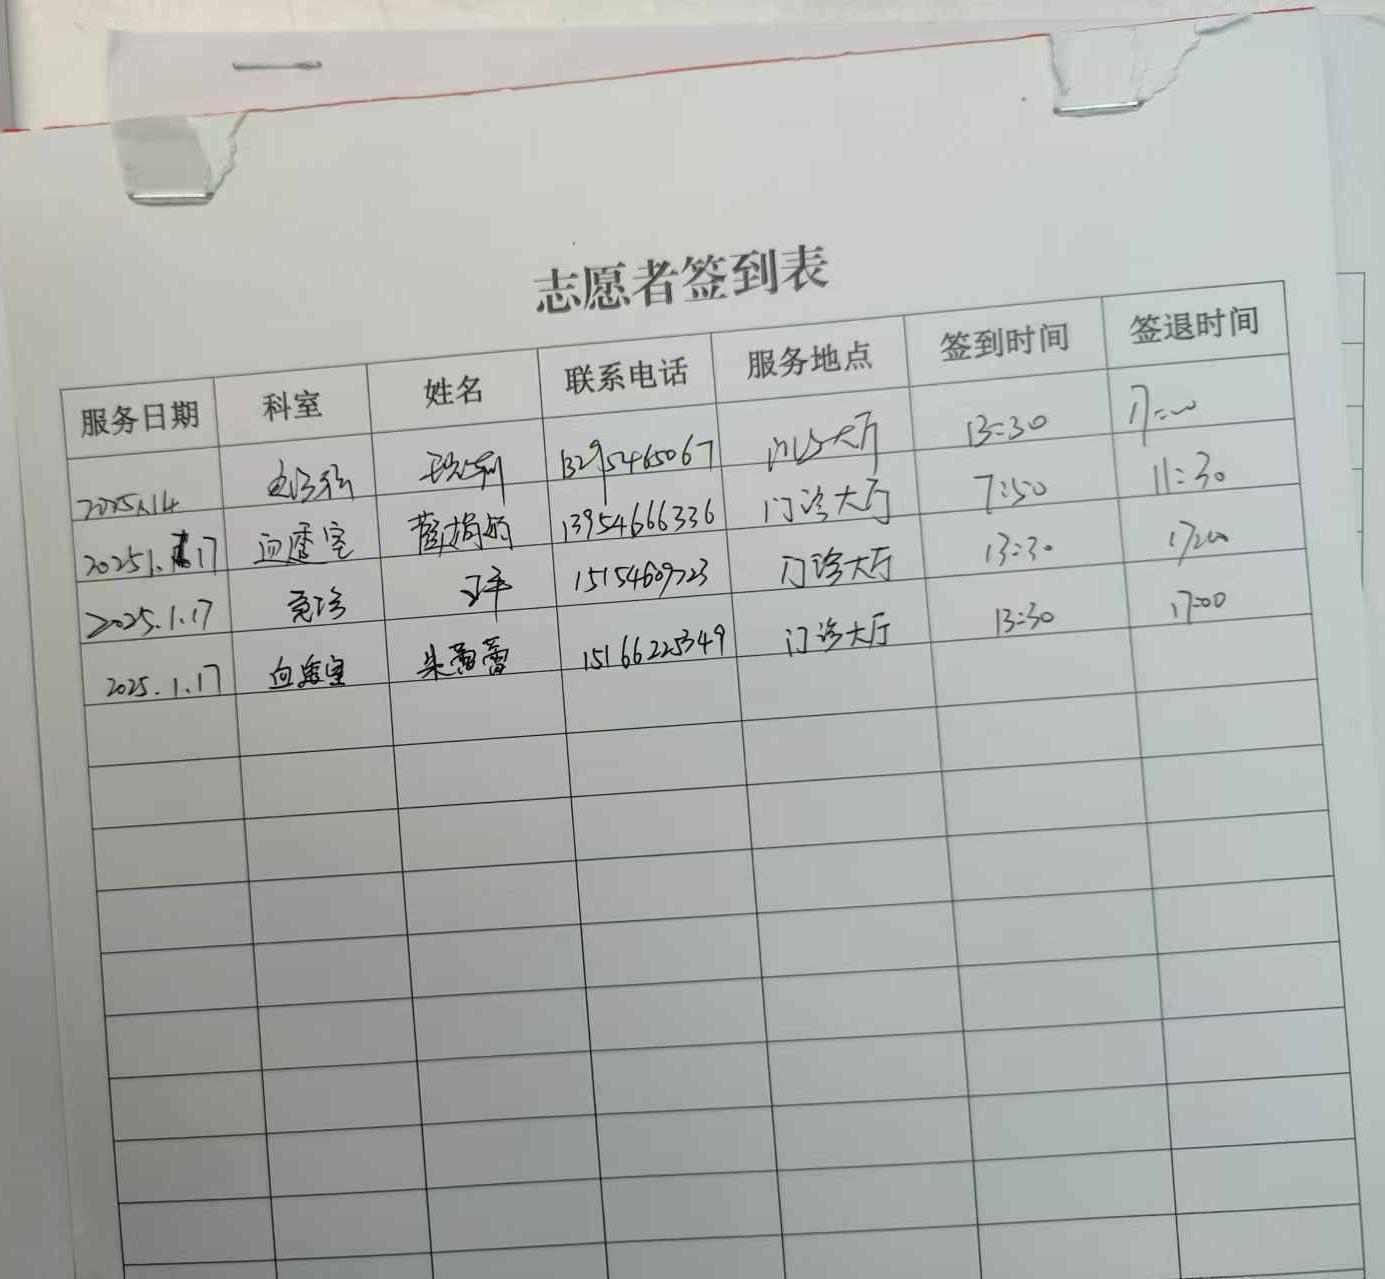 志愿者签到表
服务日期 科室 姓名 联系电话 服务地点 签到时间 签退时间
2025.1.14 13295465067 门诊大厅 13:30 17:00
2025.1.17 血透室 13954666336 门诊大厅 7:50 11:30
2025.1.17 15154609723 门诊大厅 13:30 17:00
2025.1.17 血透室 朱蕾蕾 15166225349 门诊大厅 13:30 17:00